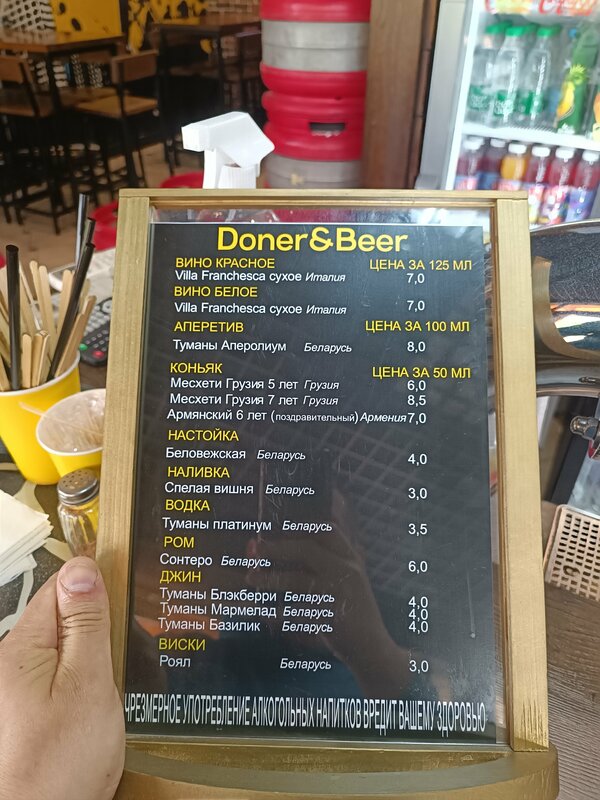 Doner&Beer
ВИНО КРАСНОЕ ЦЕНА ЗА 125 МЛ
Villa Franchesca сухое Италия 7,0
ВИНО БЕЛОЕ
Villa Franchesca сухое Италия 7,0
АПЕРЕТИВ ЦЕНА ЗА 100 МЛ
Туманы Аперолиум Беларусь 8,0
КОНЬЯК ЦЕНА ЗА 50 МЛ
Месхети Грузия 5 лет Грузия 6,0
Месхети Грузия 7 лет Грузия 8,5
Армянский 6 лет (поздравительный) Армения 7,0
НАСТОЙКА
Беловежская Беларусь 4,0
НАЛИВКА
Спелая вишня Беларусь 3,0
ВОДКА
Туманы платинум Беларусь 3,5
РОМ
Сонтеро Беларусь 6,0
ДЖИН
Туманы Блэкберри Беларусь 4,0
Туманы Мармелад Беларусь 4,0
Туманы Базилик Беларусь 4,0
ВИСКИ
Роял Беларусь 3,0
ЧРЕЗМЕРНОЕ УПОТРЕБЛЕНИЕ АЛКОГОЛЬНЫХ НАПИТКОВ ВРЕДИТ ВАШЕМУ ЗДОРОВЬЮ